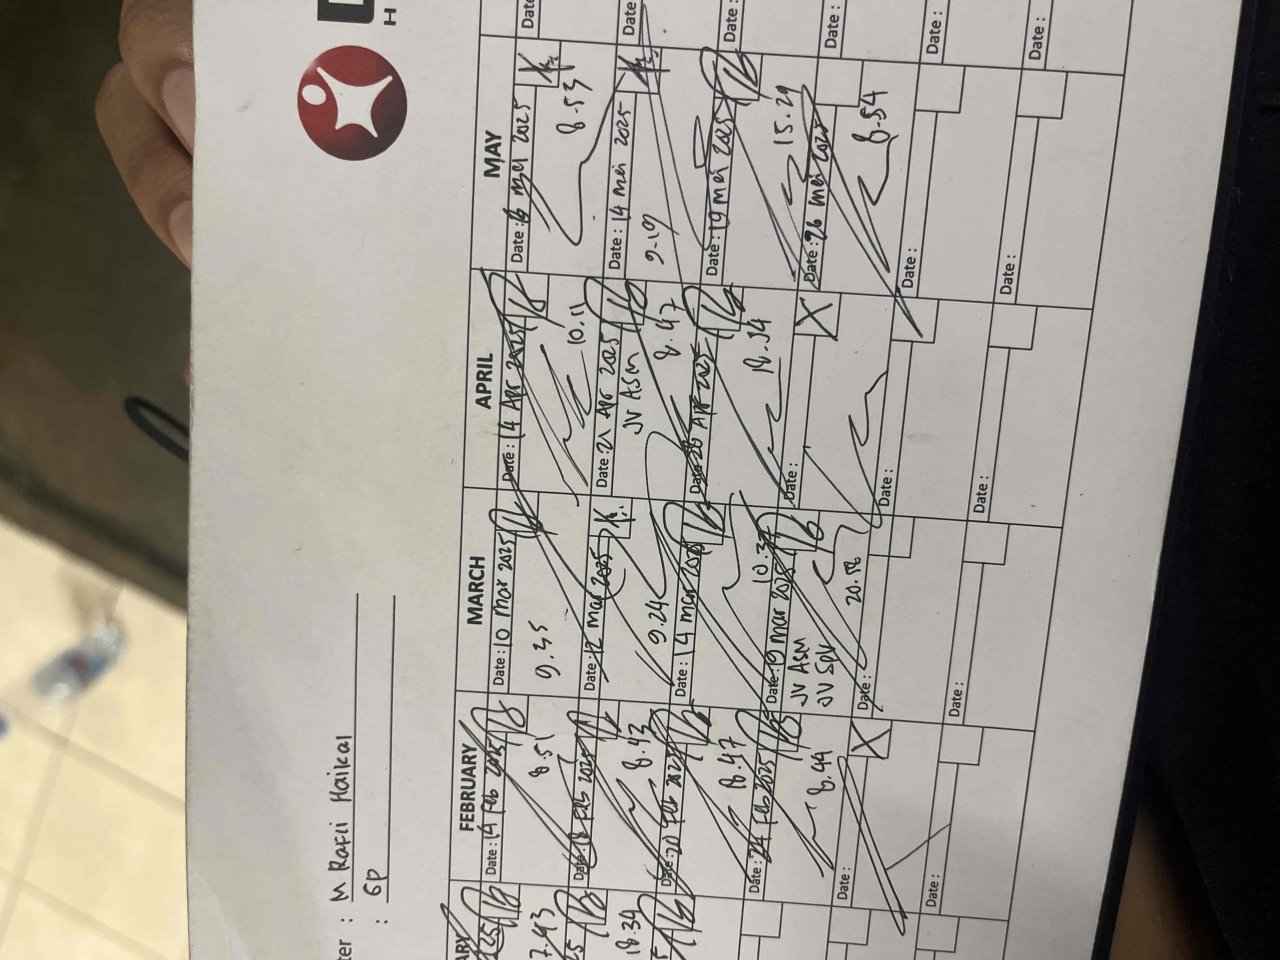 ter : M Rafli Haikal
: GP
FEBRUARY
Date : 14 Feb 2025
8.51
Date : 18 Feb 2025
8.43
Date : 20 Feb 2025
18.47
Date : 24 Feb 2025
8.44
Date :
X
Date :
MARCH
Date : 10 mar 2025
9.35
Date : 12 mar 2025
9.24
Date : 14 mar 2025
Date : 19 mar 2025
JV ASM
JV SPV
20.58
Date :
Date :
APRIL
Date : 14 Apr 2025
10.11
Date : 21 Apr 2025
JV ASM
8.47
Date : 28 Apr 2025
18.34
Date :
X
Date :
Date :
MAY
Date : 6 mei 2025
8.53
Date : 14 mei 2025
9.19
Date : 19 mei 2025
15.29
Date : 26 mei 2025
8.54
Date :
Date :
Date
Date
Date :
Date :
Date :
Date :
7.43
18.34